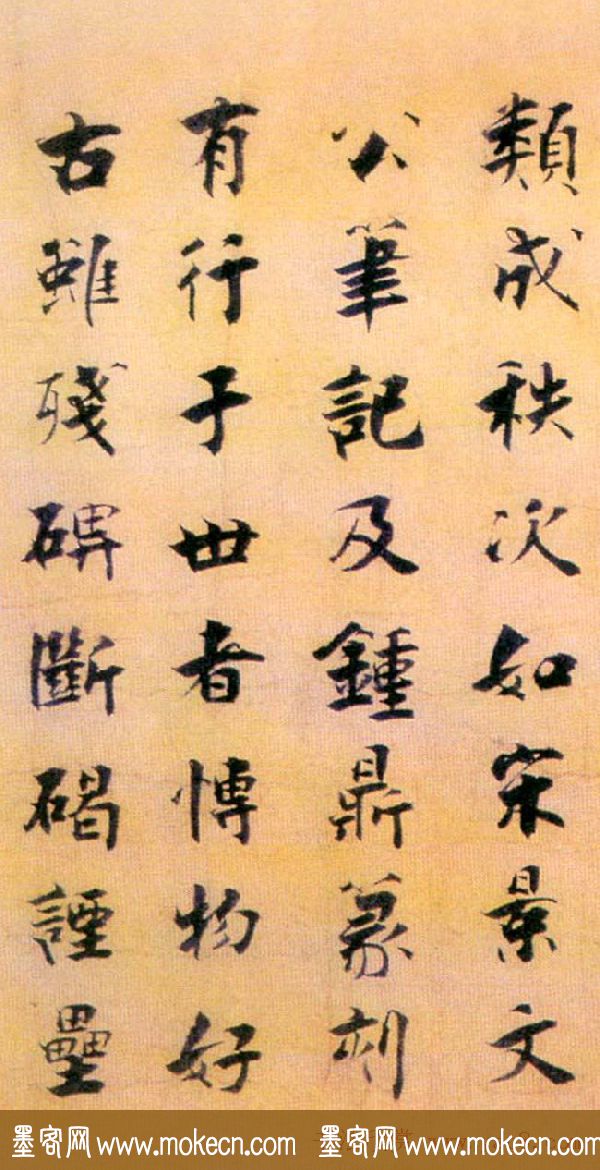 類成秩次如宋景文
公筆記及鍾鼎篆刻
有行于世者愽物好
古雖殘碑斷碣諲壘
墨客网www.mokecn.com 墨客网www.mokecn.com